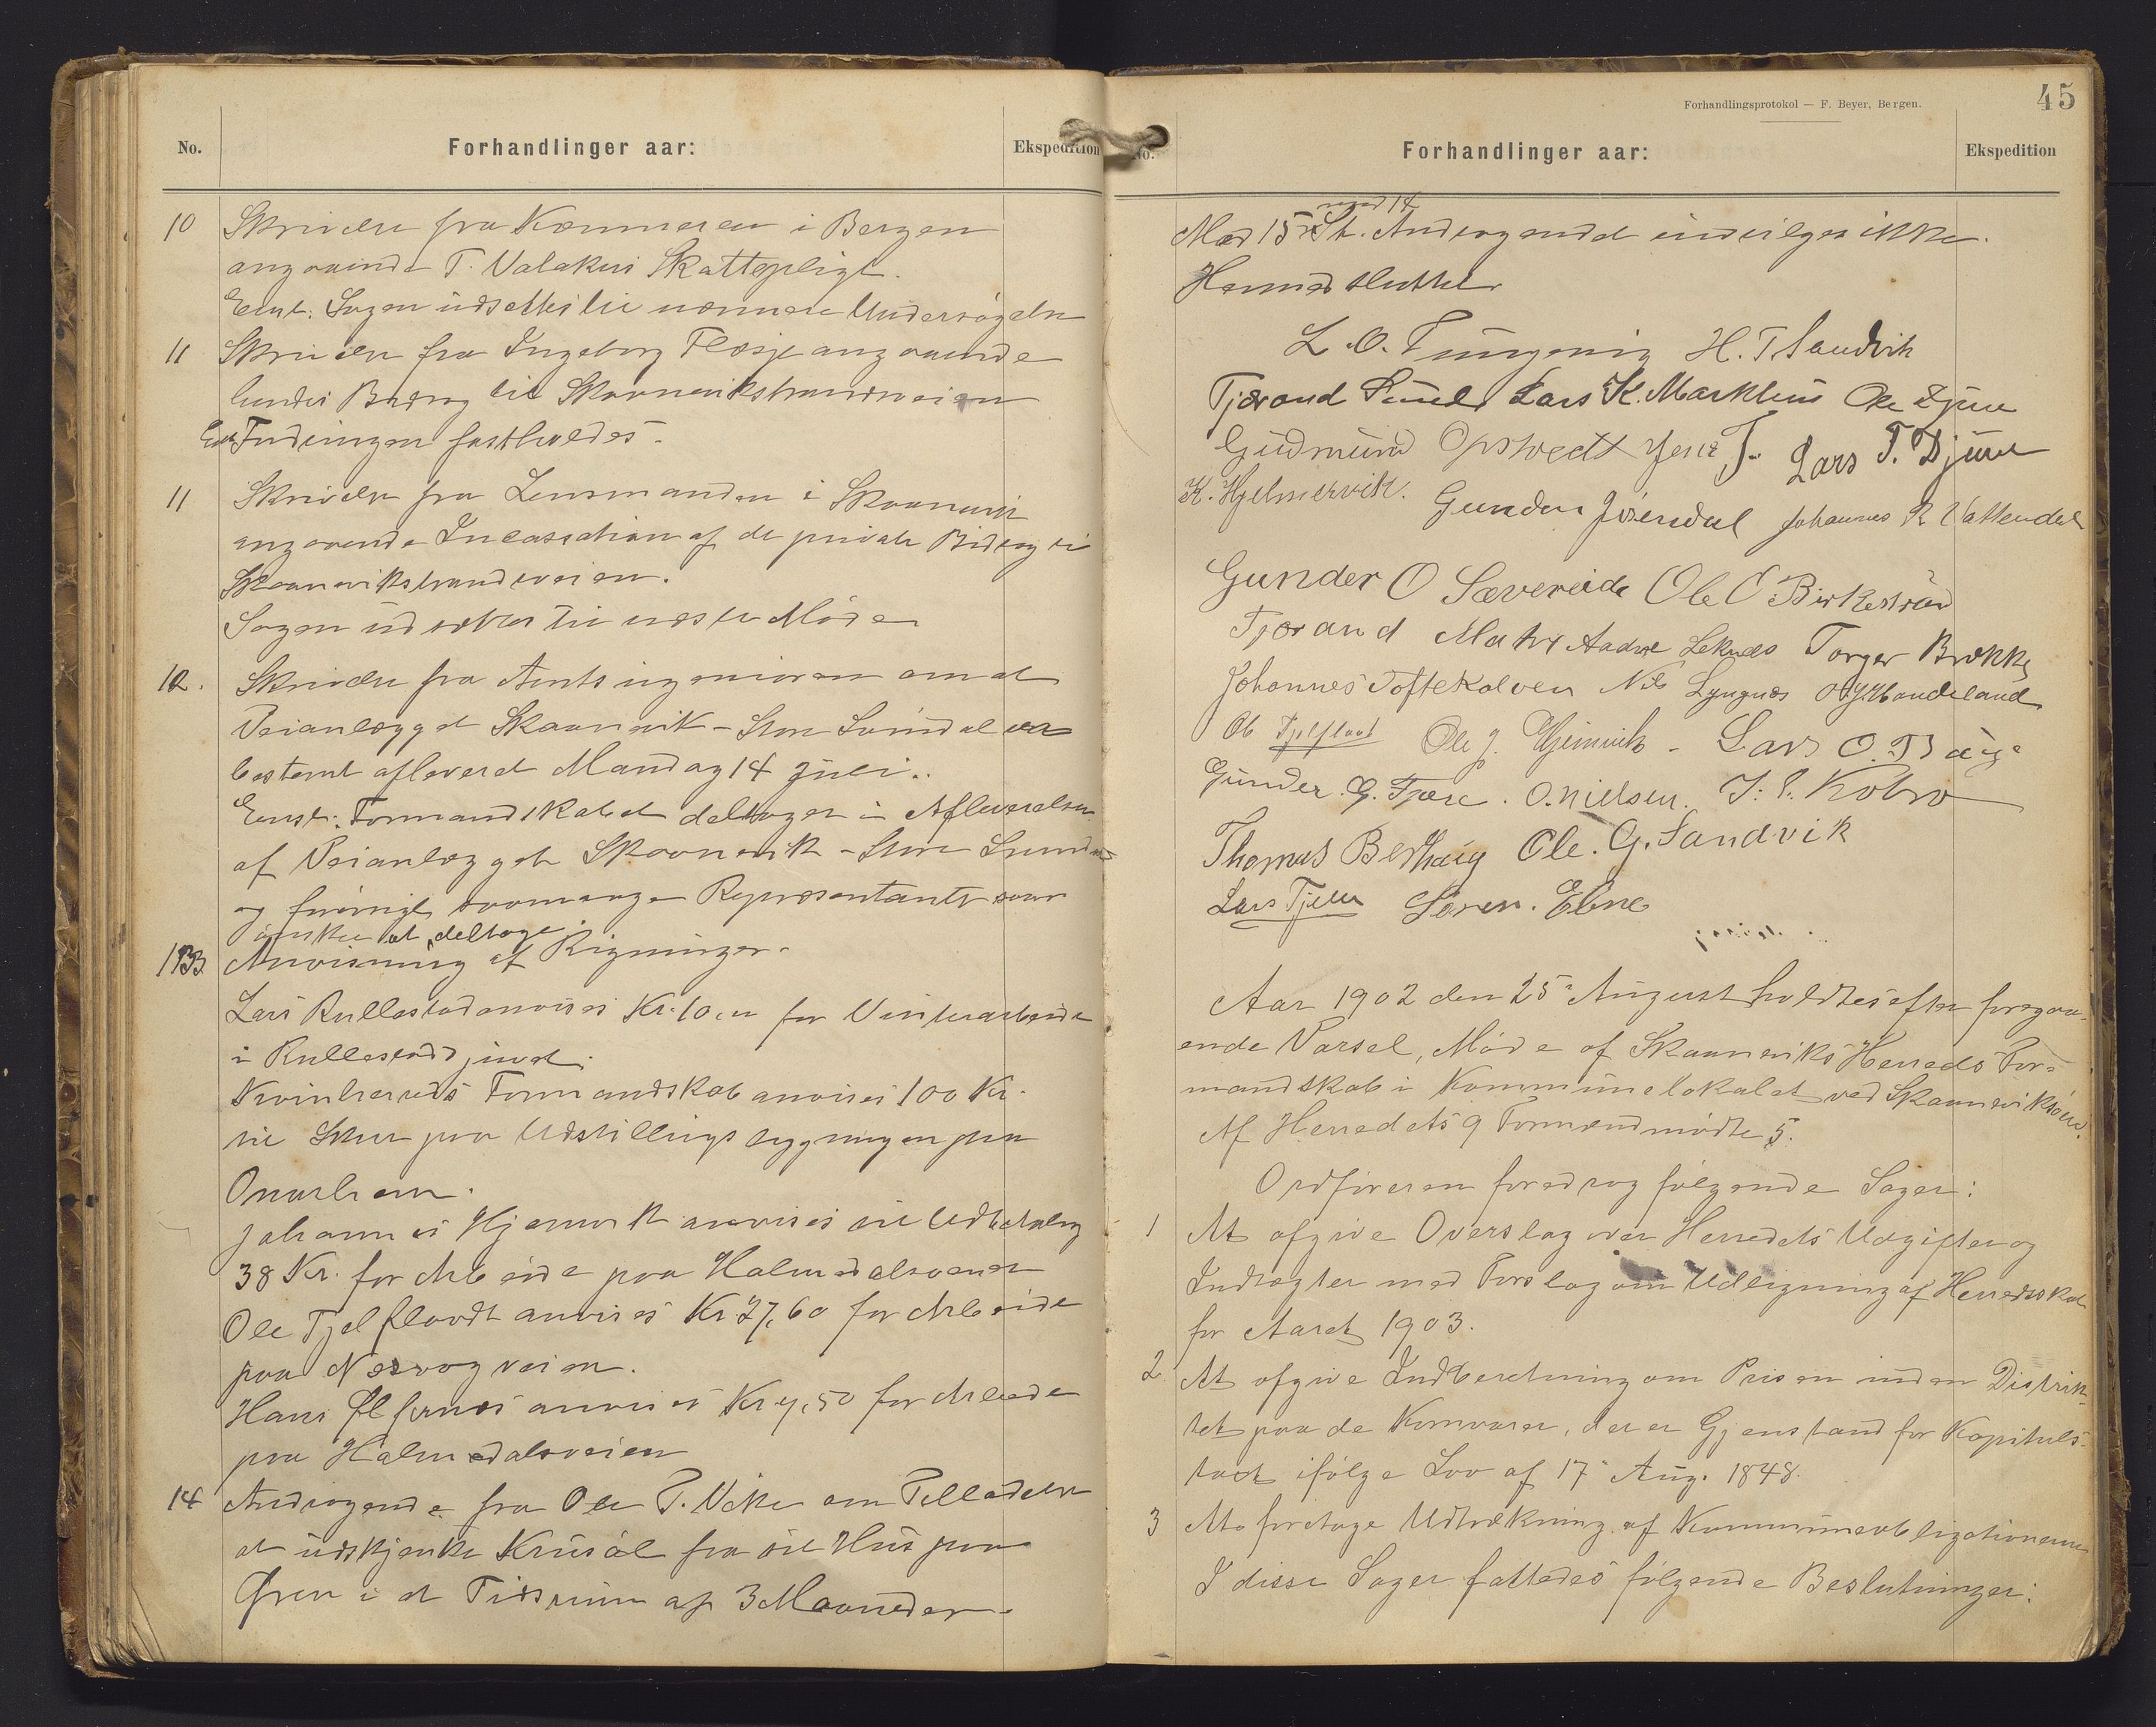 No.
Forhandlinger aar:
Ekspedition
10 Skrivelse fra Kæmneren i Bergen
angaaende T. Valakers Skattepligt.
Enst. Sagen udsættes til nærmere Undersøgelse
11 Skrivelse fra Ingeborg Flesje angaaende
hendes Bidrag til Skaanevikstrandveien
Enst Fordringen fastholdes.
11 Skrivelse fra Lensmanden i Skaanevik
angaaende Incassation af de private Bidrag til
Skaanevikstrandveien.
Sagen udsættes til næste Møde
12. Skrivelse fra Amtsingeniøren om at
Veianlægget Skaanevik - Store Sundal er
bestemt afleveret Mandag 14 Juli.
Enst: Formandskabet deltager i Afleverelsen
af Veianlægget Skaanevik - Store Sundal
og forøvrigt saamange Repræsentanter som
ønsker at deltage
13 Anvisning af Rigninger.
Lars Rullestad anvises Kr. 10,00 for Vinterarbeide
i Rullestadjuvet.
Kvinherreds Formandskab anvises 100 Kr.
til Skur paa Udstillingsbygningen paa
Onarheim.
Johannes Hjemvik anvises til Udbetaling
38 Kr. for Arbeide paa Holmedalsveien
Ole Tjelflaadt anvises Kr 27,60 for Arbeide
paa Nesvogveien.
Hans anvises Kr 4,50 for Arbeide
paa Holmedalsveien
14 Andragende fra Ole T. Vike om Tilladelse
at udskjenke Krusøl fra sit Hus paa
i et Tidsrum af 3 Maaneder.
Forhandlingsprotokol — F. Beyer, Bergen.
45
No.
Forhandlinger aar:
Ekspedition
mod 14
Med 15 St. Andragendet indvilges ikke.
Hermed sluttet
L. O. Tungesvig H. T. Sandvik
Tjærand Lars K. Markhus Ole
Gudmund Opsvedt Jens T. Lars T. Djuve
K. Hjelmervik. Gunder Johannes R Vattendal
Gunder O Sævereide Ole O Birkestrand
Tjærand Matre Aadne Leknes Torger Brekke
Johannes Toftekalven Nils Lyngnes
Ole Tjelflaat Ole J. Hjemvik - Lars O.
Gunder. G. Fjære. O. Nielsen. J. Kobro
Thomas Ole. G. Sandvik
Lars Tjelle Søren. Ebne
Aar 1902 den 25 August holdtes efter foregaa-
ende Varsel, Møde af Skaaneviks Herreds For-
mandskab i Kommunelokalet ved Skaaneviksøen.
Af Herredets 9 Formænd mødte 5.
Ordføreren foredrog følgende Sager:
1 At afgive Overslag over Herredets Udgifter og
Indtægter med Forslag om Udligning af Herredsskat
for Aaret 1903.
2 At afgive Indberetning om Prisen inden Distrik-
tet paa de Kornvarer, der er Gjenstand for Kapituls-
taxt ifølge Lov af 17 Aug. 1848.
3 At foretage Udtrækning af Kommuneobligationerne
I disse Sager fattedes følgende Beslutninger: